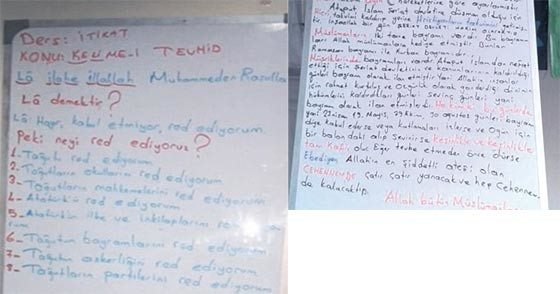 Ders: İTİKAT
KONU: KELİME-İ TEVHİD
Lâ ilahe illallah Muhammeden Rasulla
Lâ demektir?
Lâ: Hayr, kabul etmiyor, red ediyorum.
Peki neyi red ediyoruz?
1- Tağutu red ediyorum
2- Tağutların okullarını red ediyorum
3- Tağutların mahkemelerini red ediyorum
4- Atatürk'ü red ediyorum
5- Atatürkün ilke ve inkilaplarını
rum
6- Tağutun bayramlarını red ediyorum
7- Tağutun askerliğini red ediyorum
8- Tağutların partilerini red ediyorum
Hareketlerine göre ayarlamıştır
Ataput İslam Şeriat devletine düşman olduğu için
takvimi kaldırıp yerine Hristiyanların takvimini
Müslümanların iki tane bayramı vardır. Bu bayram
ları Allah müslümanlara hediye etmiştir. Bunlar:
Ramazan bayramı, Kurban bayramı
Müşriklerinde bayramları vardır. Ataput İslamdan nefret
ettiği için islam devletinin ve kanunlarının kaldırıldığı
günleri bayram olarak ilan etmiştir. Yani Allahın insanlar
için rahmet kurtuluş ve özgürlük olarak gönderdiği dininin
hükümlerini kaldırdıkları günleri sevinç günleri yani
bayram olarak ilan etmişlerdi. Her kim bu günlerde
yani 23 Nisan, 19 Mayıs, 29 Ekim, 30 ağustos günleri bayram
diye kabul ederse veya kutlamaları isterse ve Ogün için
bir balonda alıp Sevinirse Kesinlikle ve kesinlikle
tam Kafir olur Eğer tevbe etmeden önce ölürse
Ebediyen Allahın en şiddetli ateşi olan
CEHENNEMDE çatır çatır yanacak ve hep Cehennem
de kalacaktır.
Allah bütün Müslüm